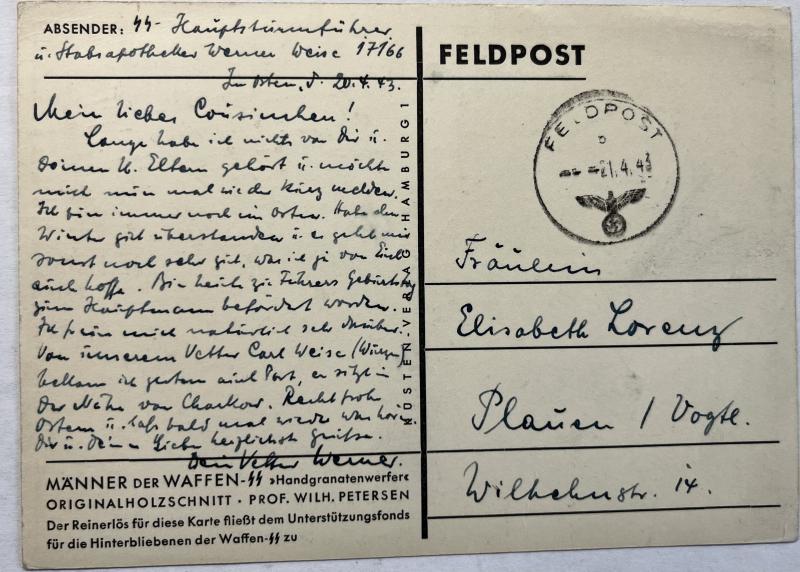 ABSENDER: SS-Hauptsturmführer
u. Stabsapotheker Werner Weise 17166
Im Osten, d. 20.4.43.
Mein liebes Cousinchen!
Lange habe ich nichts von Dir u.
Deinen lb. Eltern gehört u. möchte
mich nun mal wieder kurz melden.
Ich bin immer noch im Osten. Habe den
Winter gut überstanden u. es geht mir
sonst noch sehr gut, was ich ja von Euch
auch hoffe. Bin heute zu Führers Geburtstag
zum Hauptmann befördert worden.
Ich freue mich natürlich sehr darüber.
Von unserem Vetter Carl Weise
bekam ich gestern auch Post, er sitzt in
der Nähe von Charkow. Recht frohe
Ostern u. laß bald mal wieder was hören
Dir u. Deinen Lieben herzlichste Grüße.
Dein Vetter Werner.
MÄNNER DER WAFFEN-SS »Handgranatenwerfer«
ORIGINALHOLZSCHNITT · PROF. WILH. PETERSEN
Der Reinerlös für diese Karte fließt dem Unterstützungsfonds
für die Hinterbliebenen der Waffen-SS zu
KÜSTEN-VERLAG HAMBURG 1
FELDPOST
FELDPOST
b
21.4.43
Fräulein
Elisabeth Lorenz
Plauen / Vogtl.
Wilhelmstr. 14.